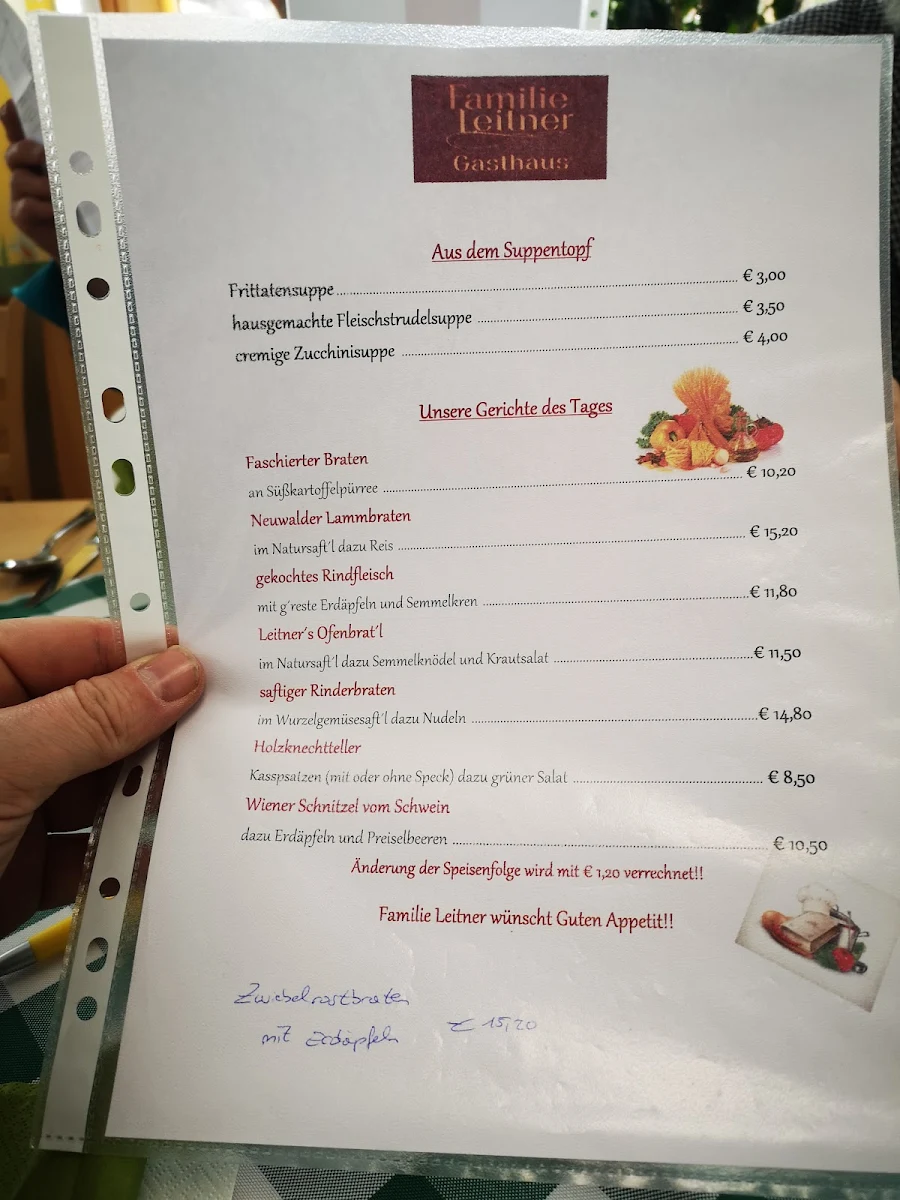 Familie
Leitner
Gasthaus
Aus dem Suppentopf
Frittatensuppe ........ € 3,00
hausgemachte Fleischstrudelsuppe ........ € 3,50
cremige Zucchinisuppe ........ € 4,00
Unsere Gerichte des Tages
Faschierter Braten
an Süßkartoffelpürree ........ € 10,20
Neuwalder Lammbraten
im Natursaft´l dazu Reis ........ € 15,20
gekochtes Rindfleisch
mit g´reste Erdäpfeln und Semmelkren ........ € 11,80
Leitner´s Ofenbrat´l
im Natursaft´l dazu Semmelknödel und Krautsalat ........ € 11,50
saftiger Rinderbraten
im Wurzelgemüsesaft´l dazu Nudeln ........ € 14,80
Holzknechtteller
Kasspsatzen (mit oder ohne Speck) dazu grüner Salat ........ € 8,50
Wiener Schnitzel vom Schwein
dazu Erdäpfeln und Preiselbeeren ........ € 10,50
Änderung der Speisenfolge wird mit € 1,20 verrechnet!!
Familie Leitner wünscht Guten Appetit!!
Zwiebelrostbraten
mit Erdäpfeln € 15,20